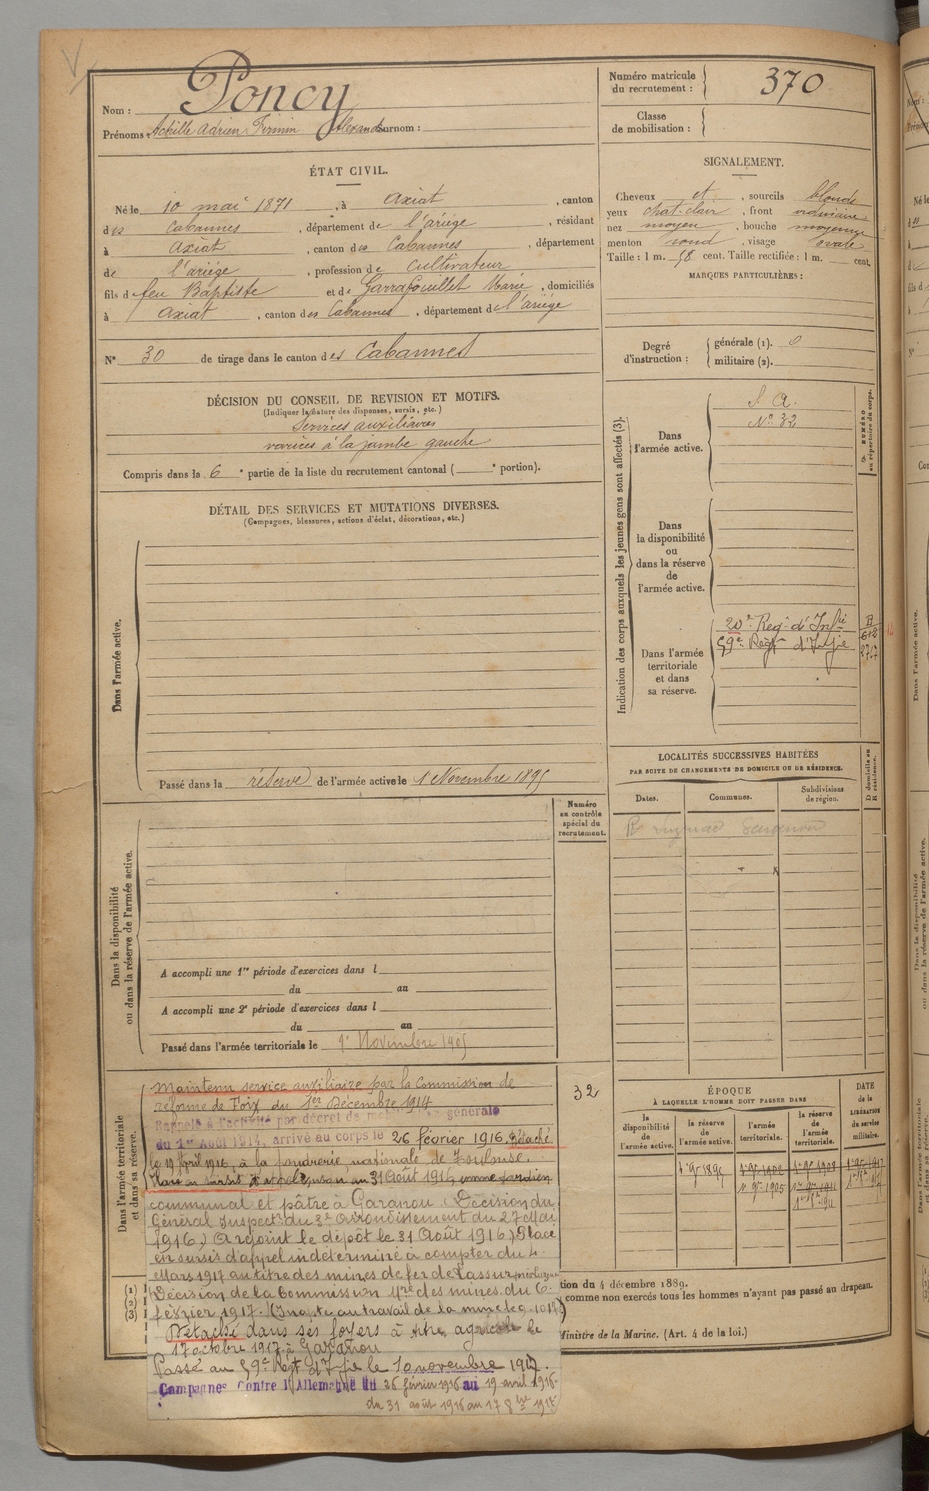 Nom : Poncy
Prénoms : Achille Adrien Firmin Alexandre Surnom :
Numéro matricule du recrutement : 370
Classe de mobilisation :
ÉTAT CIVIL.
Né le 10 mai 1871, à Axiat, canton
des Cabannes, département de l'ariège, résidant
à Axiat, canton des Cabannes, département
de l'ariège, profession de cultivateur
fils de feu Baptiste et de Garrafouillet Marie, domiciliés
à Axiat, canton des Cabannes, département de l'ariège
N° 30 de tirage dans le canton des Cabannes
SIGNALEMENT.
Cheveux et, sourcils blonds
yeux chat. clair, front ordinaire
nez moyen, bouche moyenne
menton rond, visage ovale
Taille : 1 m. 58 cent. Taille rectifiée : 1 m. cent.
MARQUES PARTICULIÈRES :
Degré d'instruction : générale (1). 0
militaire (2).
DÉCISION DU CONSEIL DE REVISION ET MOTIFS.
(Indiquer la nature des dispenses, sursis, etc.)
Services auxiliaires
varices à la jambe gauche
Compris dans la 6e partie de la liste du recrutement cantonal ( e portion).
DÉTAIL DES SERVICES ET MUTATIONS DIVERSES.
(Campagnes, blessures, actions d'éclat, décorations, etc.)
Dans l'armée active.
Passé dans la réserve de l'armée active le 1 Novembre 1895
Indication des corps auxquels les jeunes gens sont affectés (3).
NUMÉRO au répertoire du corps.
Dans l'armée active.
S. A.
N° 32
Dans la disponibilité ou dans la réserve de l'armée active.
Dans l'armée territoriale et dans sa réserve.
20e Reg. d'Inf.
59e Régt d'Inf.ie
LOCALITÉS SUCCESSIVES HABITÉES
PAR SUITE DE CHANGEMENTS DE DOMICILE OU DE RÉSIDENCE.
Dates. Communes. Subdivisions de région. D domicile ou R résidence.
Numéro au contrôle spécial du recrutement.
Dans la disponibilité ou dans la réserve de l'armée active.
A accompli une 1re période d'exercices dans l
du au
A accompli une 2e période d'exercices dans l
du au
Passé dans l'armée territoriale le 1er Novembre 1905
Dans l'armée territoriale et dans sa réserve.
32
Maintenu service auxiliaire par la Commission de
réforme de Foix du 1er Décembre 1914
Rappelé à l'activité par décret de mobilisation générale
du 1er Août 1914, arrivé au corps le 26 février 1916. Détaché
le 19 Avril 1916, à la poudrerie nationale de Toulouse.
jusqu'au 31 Août 1916 comme gardien
communal et pâtre à Garanou (Décision du
Général Inspectr du 3e Arrondissement du 27 Mai
1916.) A rejoint le dépôt le 31 Août 1916. Placé
en sursis d'appel indéterminé à compter du 4
Mars 1917 au titre des mines de fer de Lassur
Décision de la Commission Mre des mines du 6
février 1917. (Inapte au travail de la mine le
Détaché dans ses foyers à titre agricole le
17 octobre 1917 à Garanou
Passé au 59e Régt d'Inf.ie le 10 novembre 1917.
Campagnes contre l'Allemagne du 26 février 1916 au 19 avril 1916
du 31 août 1916 au 17 8bre 1917
ÉPOQUE
À LAQUELLE L'HOMME DOIT PASSER DANS
la disponibilité de l'armée active. la réserve de l'armée active. l'armée territoriale. la réserve de l'armée territoriale.
DATE de la LIBÉRATION du service militaire.
tion du 4 décembre 1889.
comme non exercés tous les hommes n'ayant pas passé au drapeau.
Ministre de la Marine. (Art. 4 de la loi.)
(1)
(2)
(3)